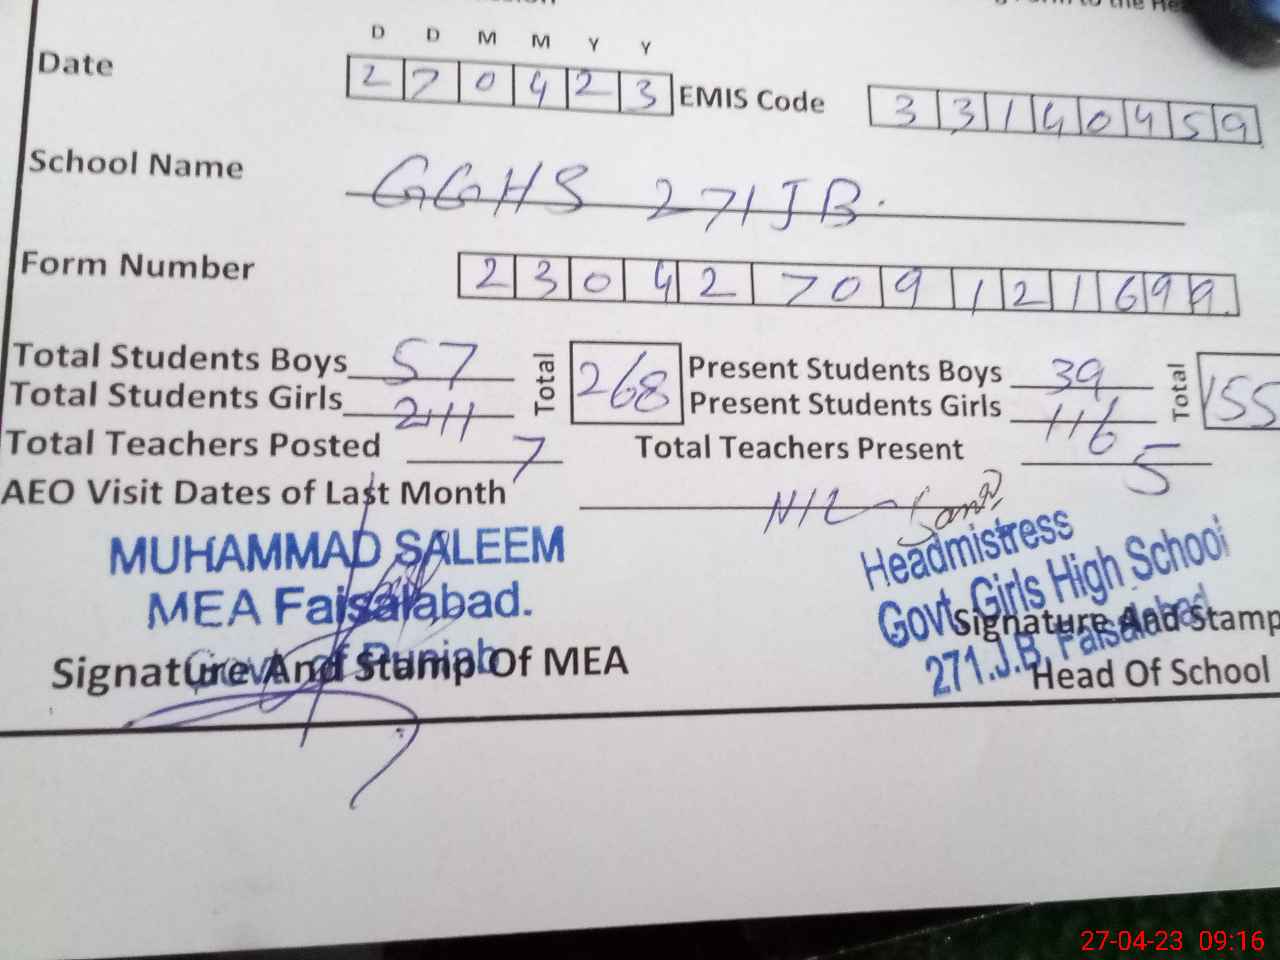 D D M M Y Y
Date 2 7 0 4 2 3 EMIS Code 3 3 1 4 0 4 5 9
School Name GGHS 271 JB.
Form Number 2 3 0 4 2 7 0 9 1 2 1 6 9 9
Total Students Boys 57 Total 268 Present Students Boys 39 Total 155
Total Students Girls 211 Present Students Girls 116
Total Teachers Posted 7 Total Teachers Present 5
AEO Visit Dates of Last Month NIL
MUHAMMAD SALEEM
MEA Faisalabad.
Govt. of Punjab
Signature And Stamp Of MEA
Headmistress
Govt. Girls High School
271.J.B. Faisalabad
Signature And Stamp
Head Of School
27-04-23 09:16